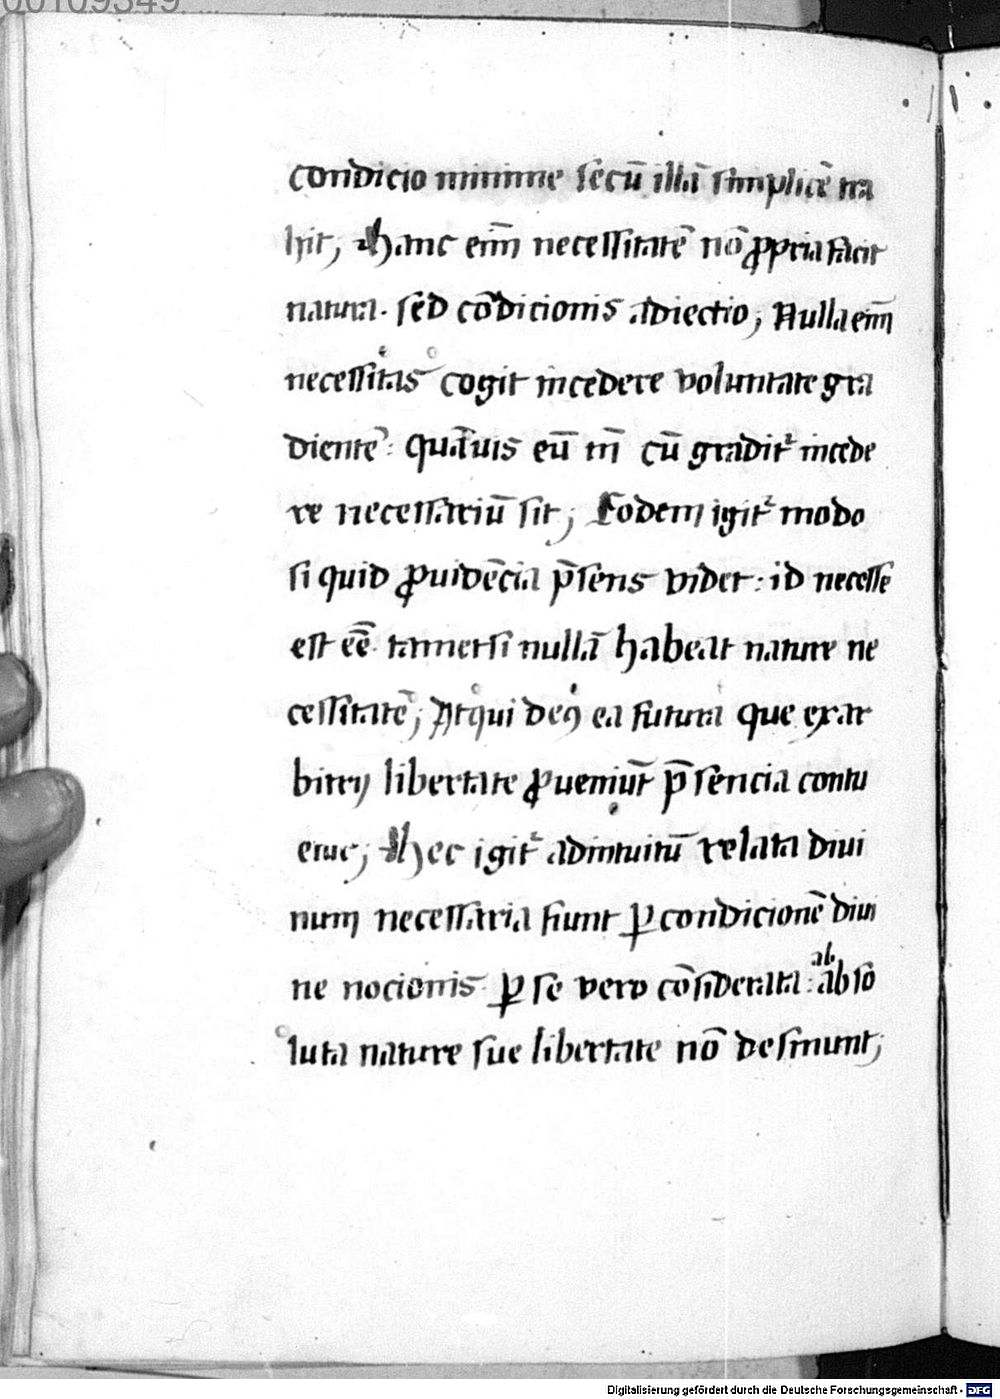 00109349
condicio minime secū illā simplicē tra
hit; hanc eni̅ necessitatē nō ꝓpria facit
natura. sed cōdicionis adiectio; Nulla eni̅
necessitas cogit incedere voluntate gra
dientē: quāuis eū tn̄ cū gradit᷑ incede
re necessariū sit; Eodem igit᷑ modo
si quid ꝓuidēcia p̄sens videt: id necesse
est eē̅ tametsi nullā habeat nature ne
cessitatē; Atqui deꝰ ea futura que ex ar
bitrij libertate ꝓueniūt p̄sencia contu
etur; hec igit᷑ ad intuitū relata diui
num necessaria fiunt ꝑ condicionē diui
ne nocionis ꝑ se vero cōsiderata: ab abso
luta nature sue libertate nō desinunt;
Digitalisierung gefördert durch die Deutsche Forschungsgemeinschaft - DFG